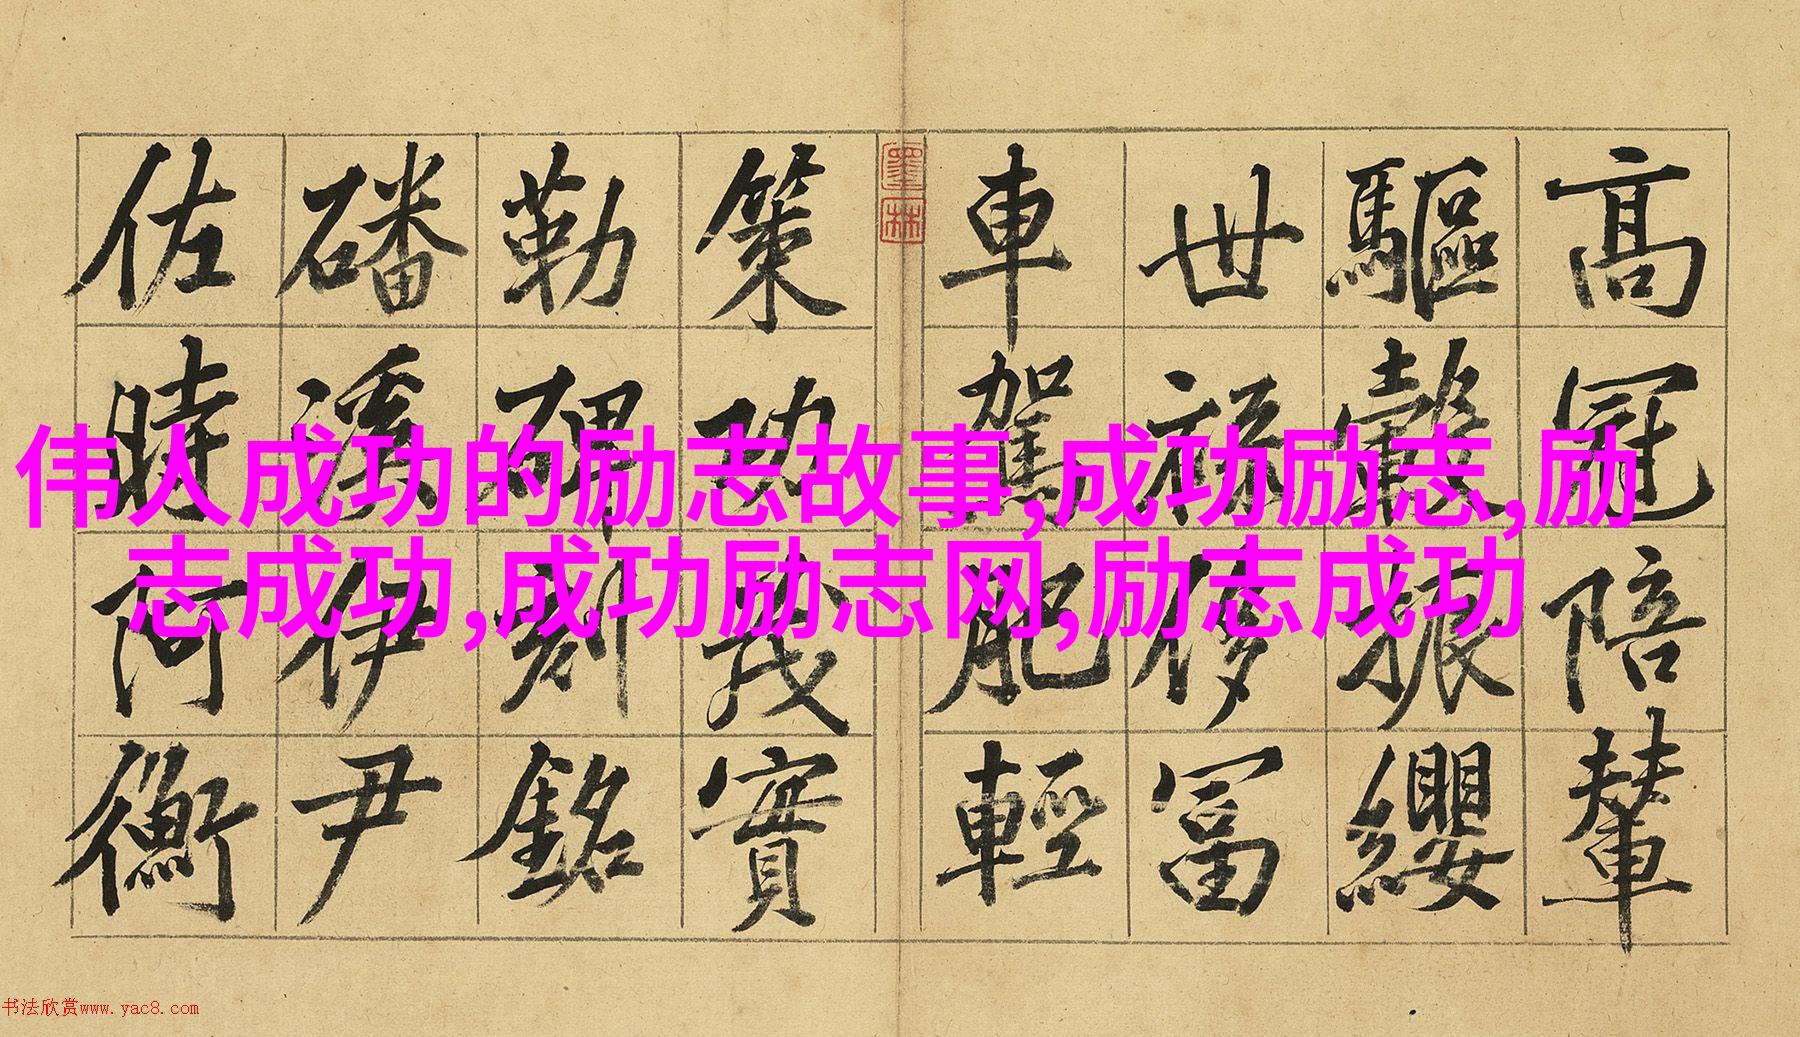 高冠陪輦
驅轂振纓
世祿侈富
車駕肥輕
策功茂實
勒碑刻銘
磻溪伊尹
佐時阿衡
墨林
伟人成功的励志故事,成功励志,励
志成功,成功励志网,励志成功
书法欣赏www.yac8.com